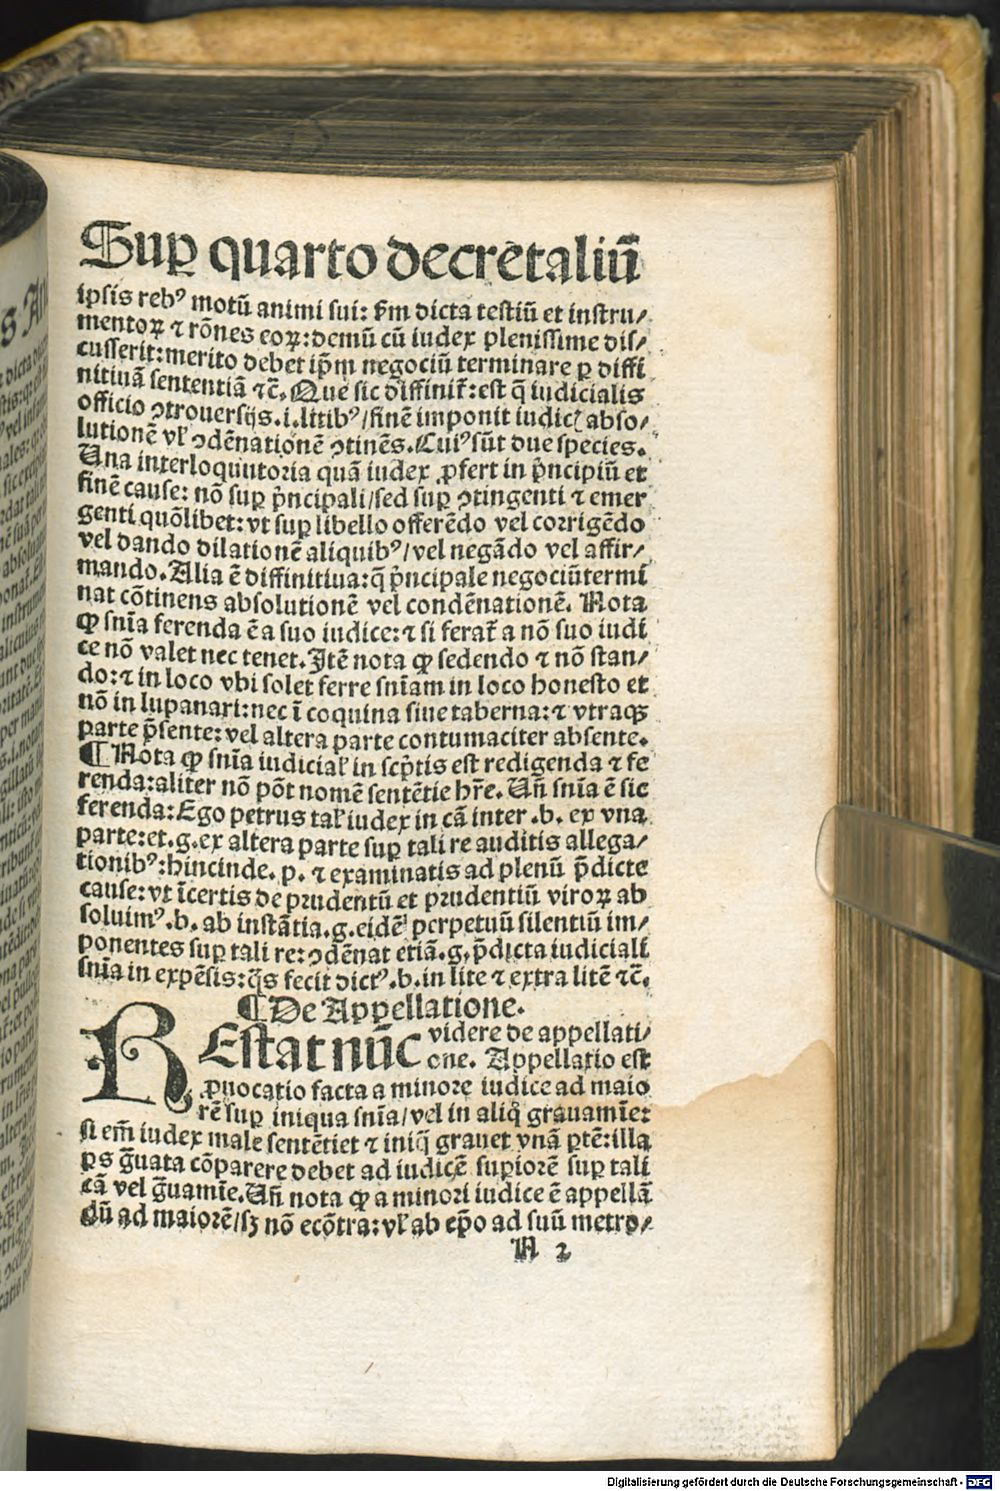 Sup̱ quarto decretaliū
ipsis rebꝰ motū animi sui: ẜm dicta testiū et instru⸗
mentoꝝ ⁊ rōnes eoꝝ: demū cū iudex plenissime dis⸗
cusserit: merito debet ip̄m negociū terminare ꝑ diffi
nitiuā sententiā ⁊c̄. Que sic diffinit̄: est q̄ iudicialis
officio ꝯtrouersijs .i. litibꝰ/ finē imponit iudicꝭ abso⸗
lutionē vl̓ ꝯdēnationē ꝯtinēs. Cuiꝰ sūt due species.
Una interloquutoria quā iudex ꝓfert in p̄ncipiū et
finē cause: nō suꝑ p̄ncipali/ sed suꝑ ꝯtingenti ⁊ emer
genti quōlibet: vt suꝑ libello offerēdo vel corrigēdo
vel dando dilationē aliquibꝰ/ vel negādo vel affir⸗
mando. Alia ē diffinitiua: q̄ p̄ncipale negociū termi
nat cōtinens absolutionē vel condēnationē. Nota
ꝙ sn̄ia ferenda ē a suo iudice: ⁊ si ferat̄ a nō suo iudi
ce nō valet nec tenet. Itē nota ꝙ sedendo ⁊ nō stan⸗
do: ⁊ in loco vbi solet ferre sn̄iam in loco honesto et
nō in lupanari: nec ī coquina siue taberna: ⁊ vtraqꝫ
parte p̄sente: vel altera parte contumaciter absente.
¶ Nota ꝙ sn̄ia iudicial̓ in scp̄tis est redigenda ⁊ fe
renda: aliter nō pōt nomē sentētie hr̄e. Un̄ sn̄ia ē sic
ferenda: Ego petrus tal̓ iudex in cā inter .b. ex vna
parte: et .g. ex altera parte suꝑ tali re auditis allega⸗
tionibꝰ: hincinde. p. ⁊ examinatis ad plenū p̄dicte
cause: vt īcertis de prudentū et prudentiū viroꝝ ab
soluimꝰ .b. ab instātia .g. eidē perpetuū silentiū im⸗
ponentes suꝑ tali re: ꝯdēnat etiā .g. p̄dicta iudiciali
sn̄ia in expēsis: q̄s fecit dictꝰ .b. in lite ⁊ extra litē ⁊c̄.
¶ De Appellatione.
REstat nūc videre de appellati⸗
one. Appellatio est
ꝓuocatio facta a minore iudice ad maio
rē suꝑ iniqua sn̄ia/ vel in aliq̄ grauamīe:
si em̄ iudex male sentētiet ⁊ iniq̄ grauet vnā ꝑtē: illa
ꝑs ḡuata cōparere debet ad iudicē suꝑiorē suꝑ tali
cā vel ḡuamīe. Un̄ nota ꝙ a minori iudice ē appellā
dū ad maiorē/ sꝫ nō ecōtra: vl̓ ab ep̄o ad suū metro⸗
N 2
Digitalisierung gefördert durch die Deutsche Forschungsgemeinschaft - DFG